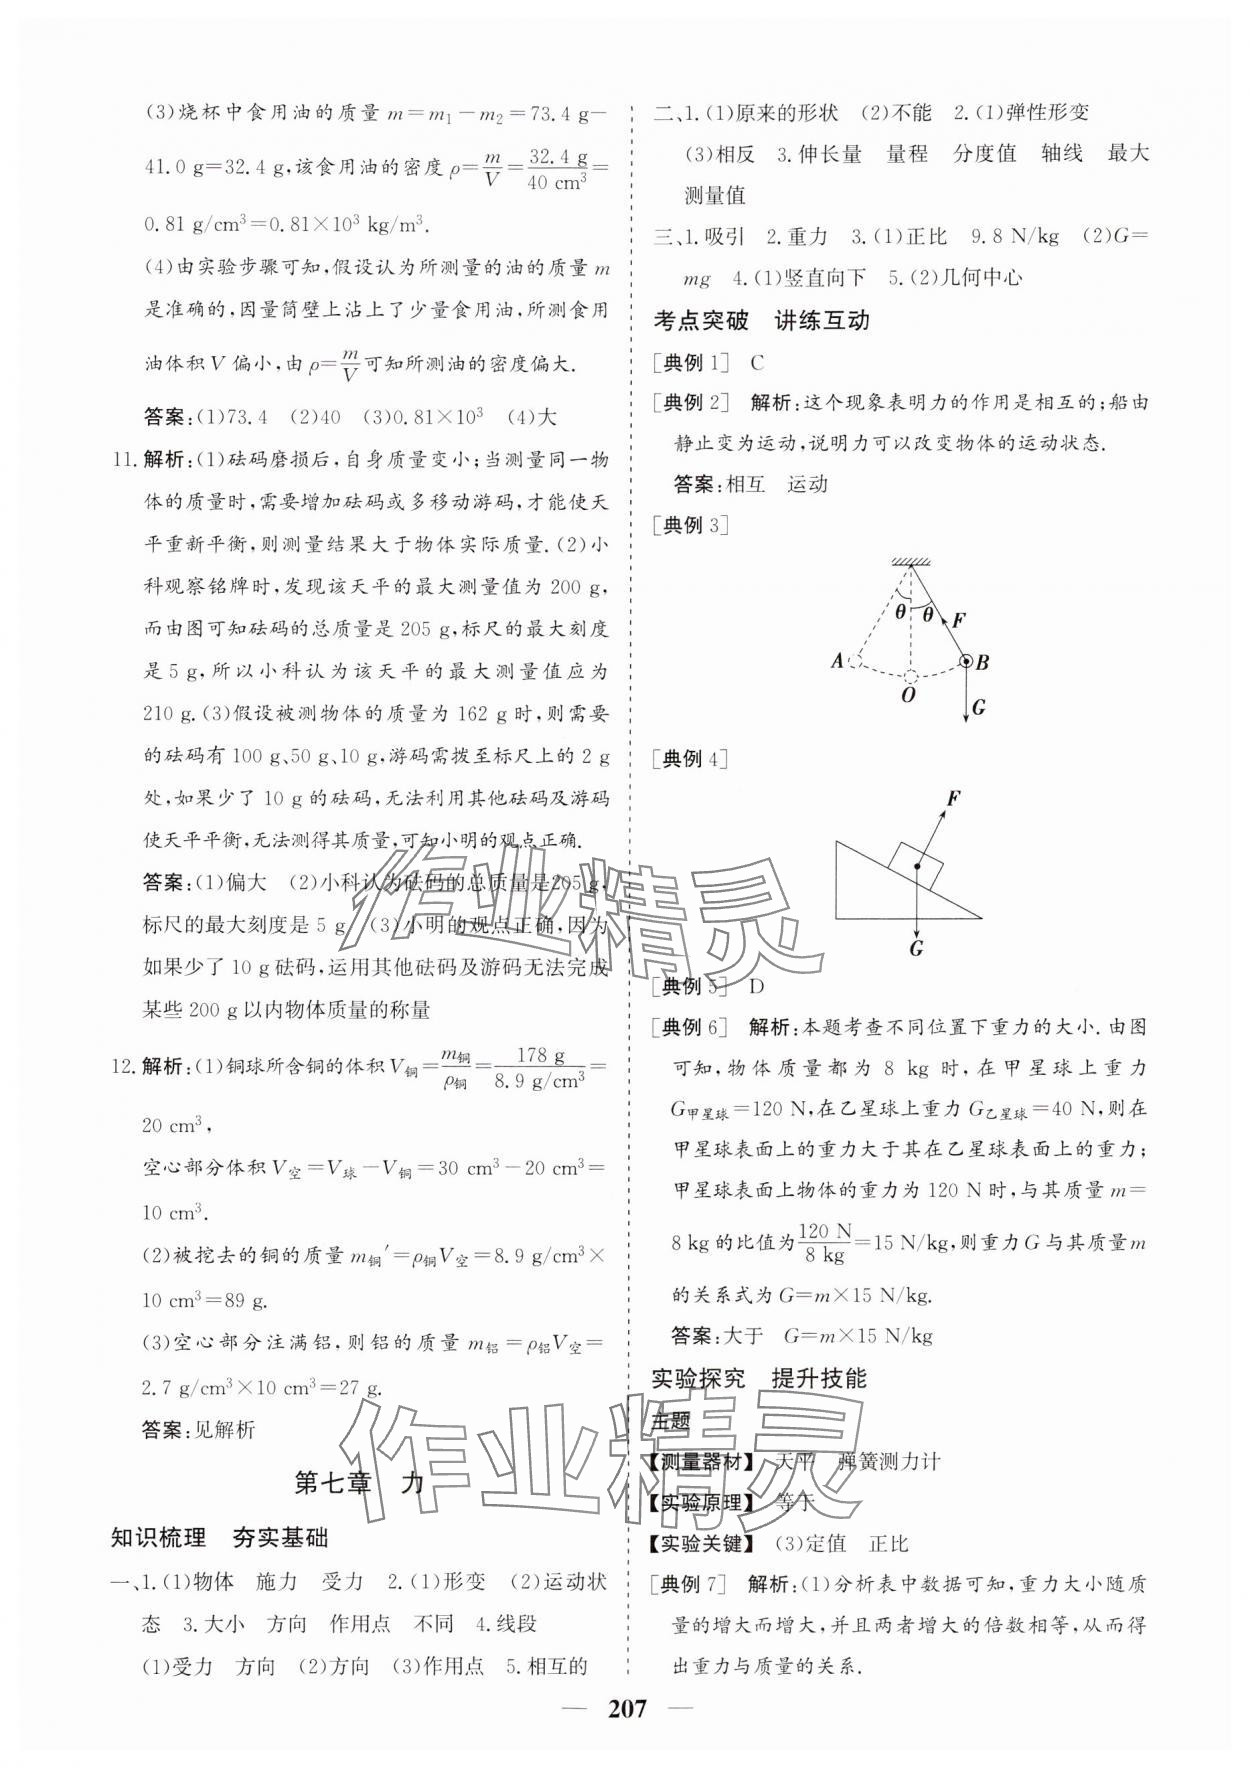 (3)烧杯中食用油的质量 m=m₁-m₂=73.4 g-
41.0 g=32.4 g,该食用油的密度 ρ=m/V=32.4 g/40 cm³=
0.81 g/cm³=0.81×10³ kg/m³.
(4)由实验步骤可知,假设认为所测量的油的质量 m
是准确的,因量筒壁上沾上了少量食用油,所测食用
油体积 V 偏小,由 ρ=m/V可知所测油的密度偏大.
答案:(1)73.4 (2)40 (3)0.81×10³ (4)大
11.解析:(1)砝码磨损后,自身质量变小;当测量同一物
体的质量时,需要增加砝码或多移动游码,才能使天
平重新平衡,则测量结果大于物体实际质量.(2)小
科观察铭牌时,发现该天平的最大测量值为 200 g,
而由图可知砝码的总质量是 205 g,标尺的最大刻度
是 5 g,所以小科认为该天平的最大测量值应为
210 g.(3)假设被测物体的质量为 162 g 时,则需要
的砝码有 100 g、50 g、10 g,游码需拨至标尺上的 2 g
处,如果少了 10 g 的砝码,无法利用其他砝码及游码
使天平平衡,无法测得其质量,可知小明的观点正确.
答案:(1)偏大 (2)小科认为砝码的总质量是205 g,
标尺的最大刻度是 5 g (3)小明的观点正确,因为
如果少了 10 g 砝码,运用其他砝码及游码无法完成
某些 200 g 以内物体质量的称量
12.解析:(1)铜球所含铜的体积 V铜=m铜/ρ铜=178 g/8.9 g/cm³=
20 cm³,
空心部分体积 V空=V球-V铜=30 cm³-20 cm³=
10 cm³.
(2)被挖去的铜的质量 m铜′=ρ铜V空=8.9 g/cm³×
10 cm³=89 g.
(3)空心部分注满铝,则铝的质量 m铝=ρ铝V空=
2.7 g/cm³×10 cm³=27 g.
答案:见解析
第七章 力
知识梳理 夯实基础
一、1.(1)物体 施力 受力 2.(1)形变 (2)运动状
态 3.大小 方向 作用点 不同 4.线段
(1)受力 方向 (2)方向 (3)作用点 5.相互的
二、1.(1)原来的形状 (2)不能 2.(1)弹性形变
(3)相反 3.伸长量 量程 分度值 轴线 最大
测量值
三、1.吸引 2.重力 3.(1)正比 9.8 N/kg (2)G=
mg 4.(1)竖直向下 5.(2)几何中心
考点突破 讲练互动
[典例 1] C
[典例 2] 解析:这个现象表明力的作用是相互的;船由
静止变为运动,说明力可以改变物体的运动状态.
答案:相互 运动
[典例 3]
θ θ F
A B
O
G
[典例 4]
F
G
[典例 5] D
[典例 6] 解析:本题考查不同位置下重力的大小.由图
可知,物体质量都为 8 kg 时,在甲星球上重力
G甲星球=120 N,在乙星球上重力 G乙星球=40 N,则在
甲星球表面上的重力大于其在乙星球表面上的重力;
甲星球表面上物体的重力为 120 N 时,与其质量 m=
8 kg 的比值为120 N/8 kg=15 N/kg,则重力 G 与其质量 m
的关系式为 G=m×15 N/kg.
答案:大于 G=m×15 N/kg
实验探究 提升技能
主题
【测量器材】 天平 弹簧测力计
【实验原理】 等于
【实验关键】 (3)定值 正比
[典例 7] 解析:(1)分析表中数据可知,重力大小随质
量的增大而增大,并且两者增大的倍数相等,从而得
出重力与质量的关系.
— 207 —
作业精灵
作业精灵